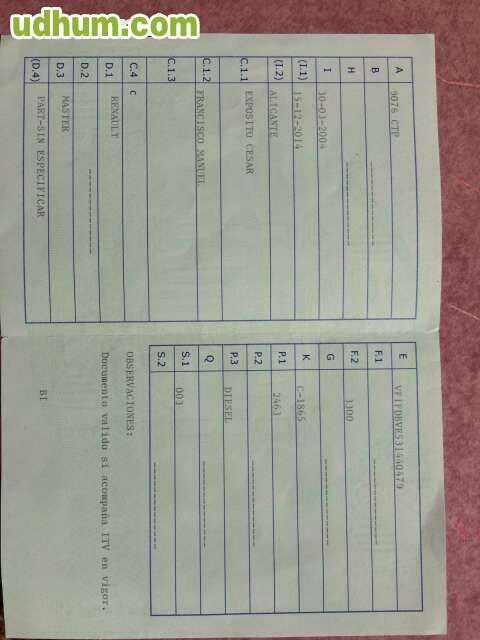 udhum.com
A 9076 CTP
B --------------
H --------------
I 30-03-2004
(I.1) 15-12-2014
(I.2) ALICANTE
C.1.1 EXPOSITO CESAR
C.1.2 FRANCISCO MANUEL
C.1.3
C.4 C
D.1 RENAULT
D.2 --------------
D.3 MASTER
(D.4) PART-SIN ESPECIFICAR
E VF1FDBVE531440479
F.1 --------------
F.2 3300
G --------------
K C-1865
P.1 2463
P.2 --------------
P.3 DIESEL
Q --------------
S.1 003
S.2 --------------
OBSERVACIONES:
Documento valido si acompaña ITV en vigor.
BI